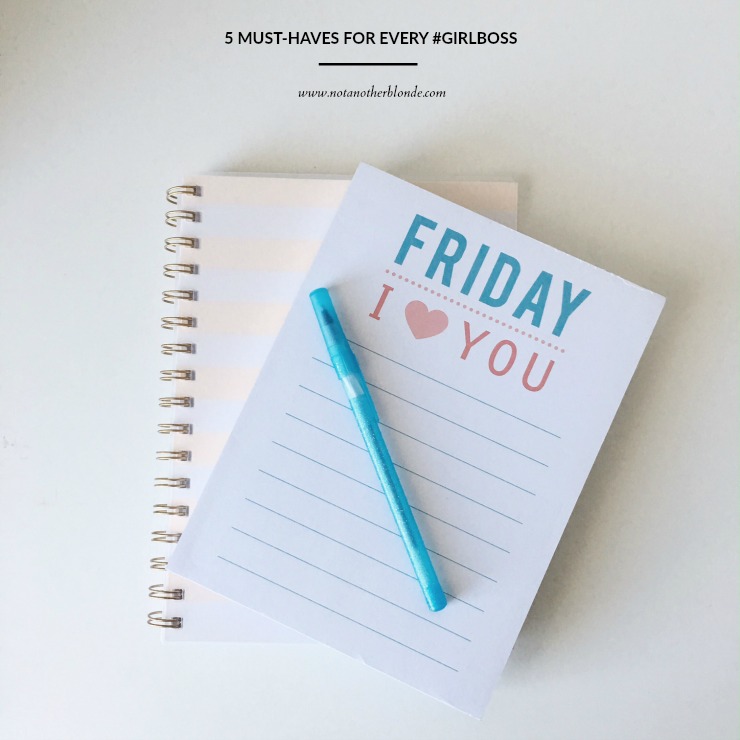 5 MUST-HAVES FOR EVERY #GIRLBOSS
www.notanotherblonde.com
FRIDAY
I ♥ YOU